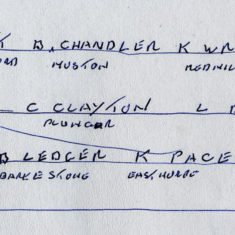 B. CHANDLER K WR
HUSTON REDMIL
C CLAYTON L
PLUNGAR
B LEDGER K PACE
BARKESTONE EASTHORPE